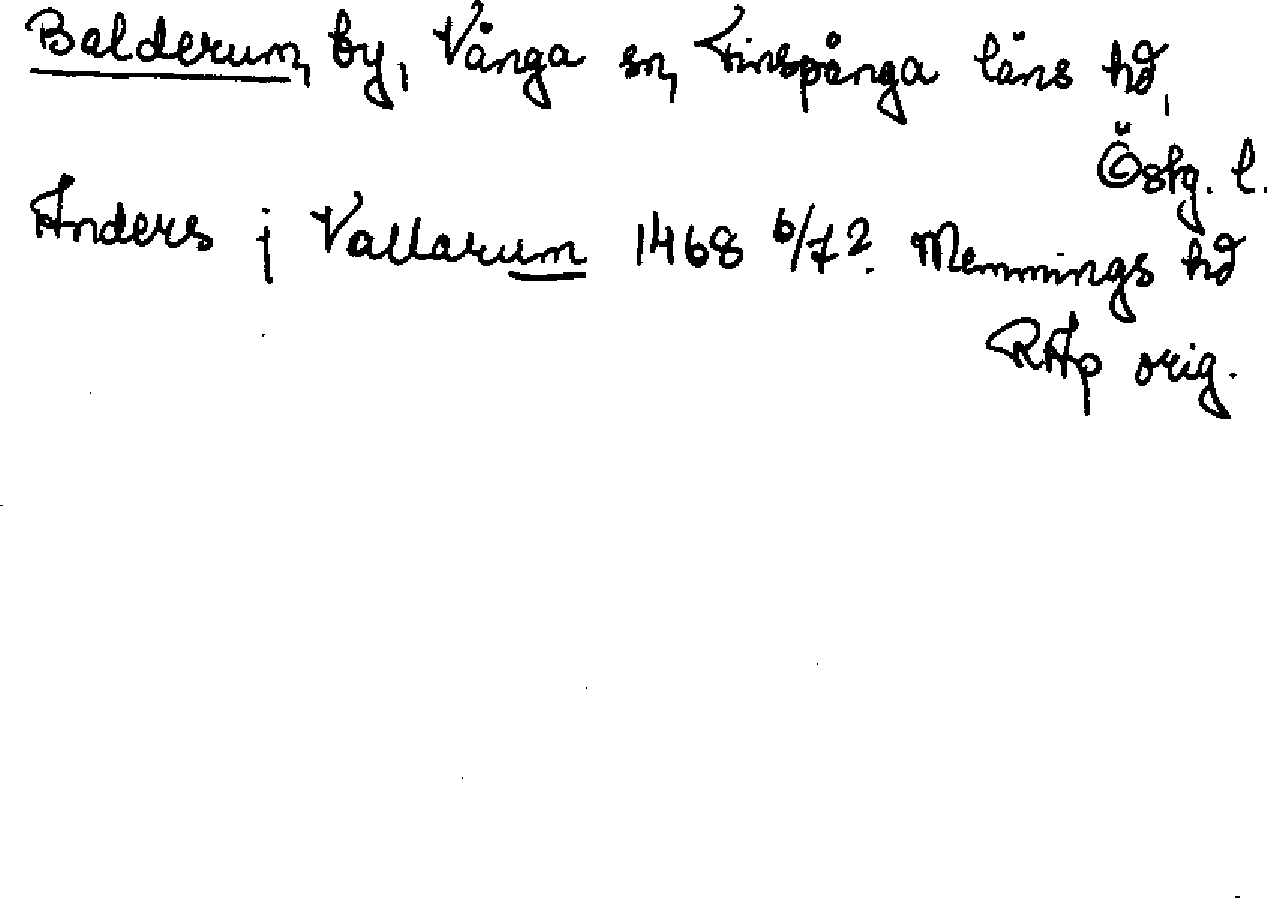 Balderum, by, Vånga sn, Finspånga läns hd,
Östg. l.
Anders j Vallarum 1468 6/7? Memmings hd
RAp orig.